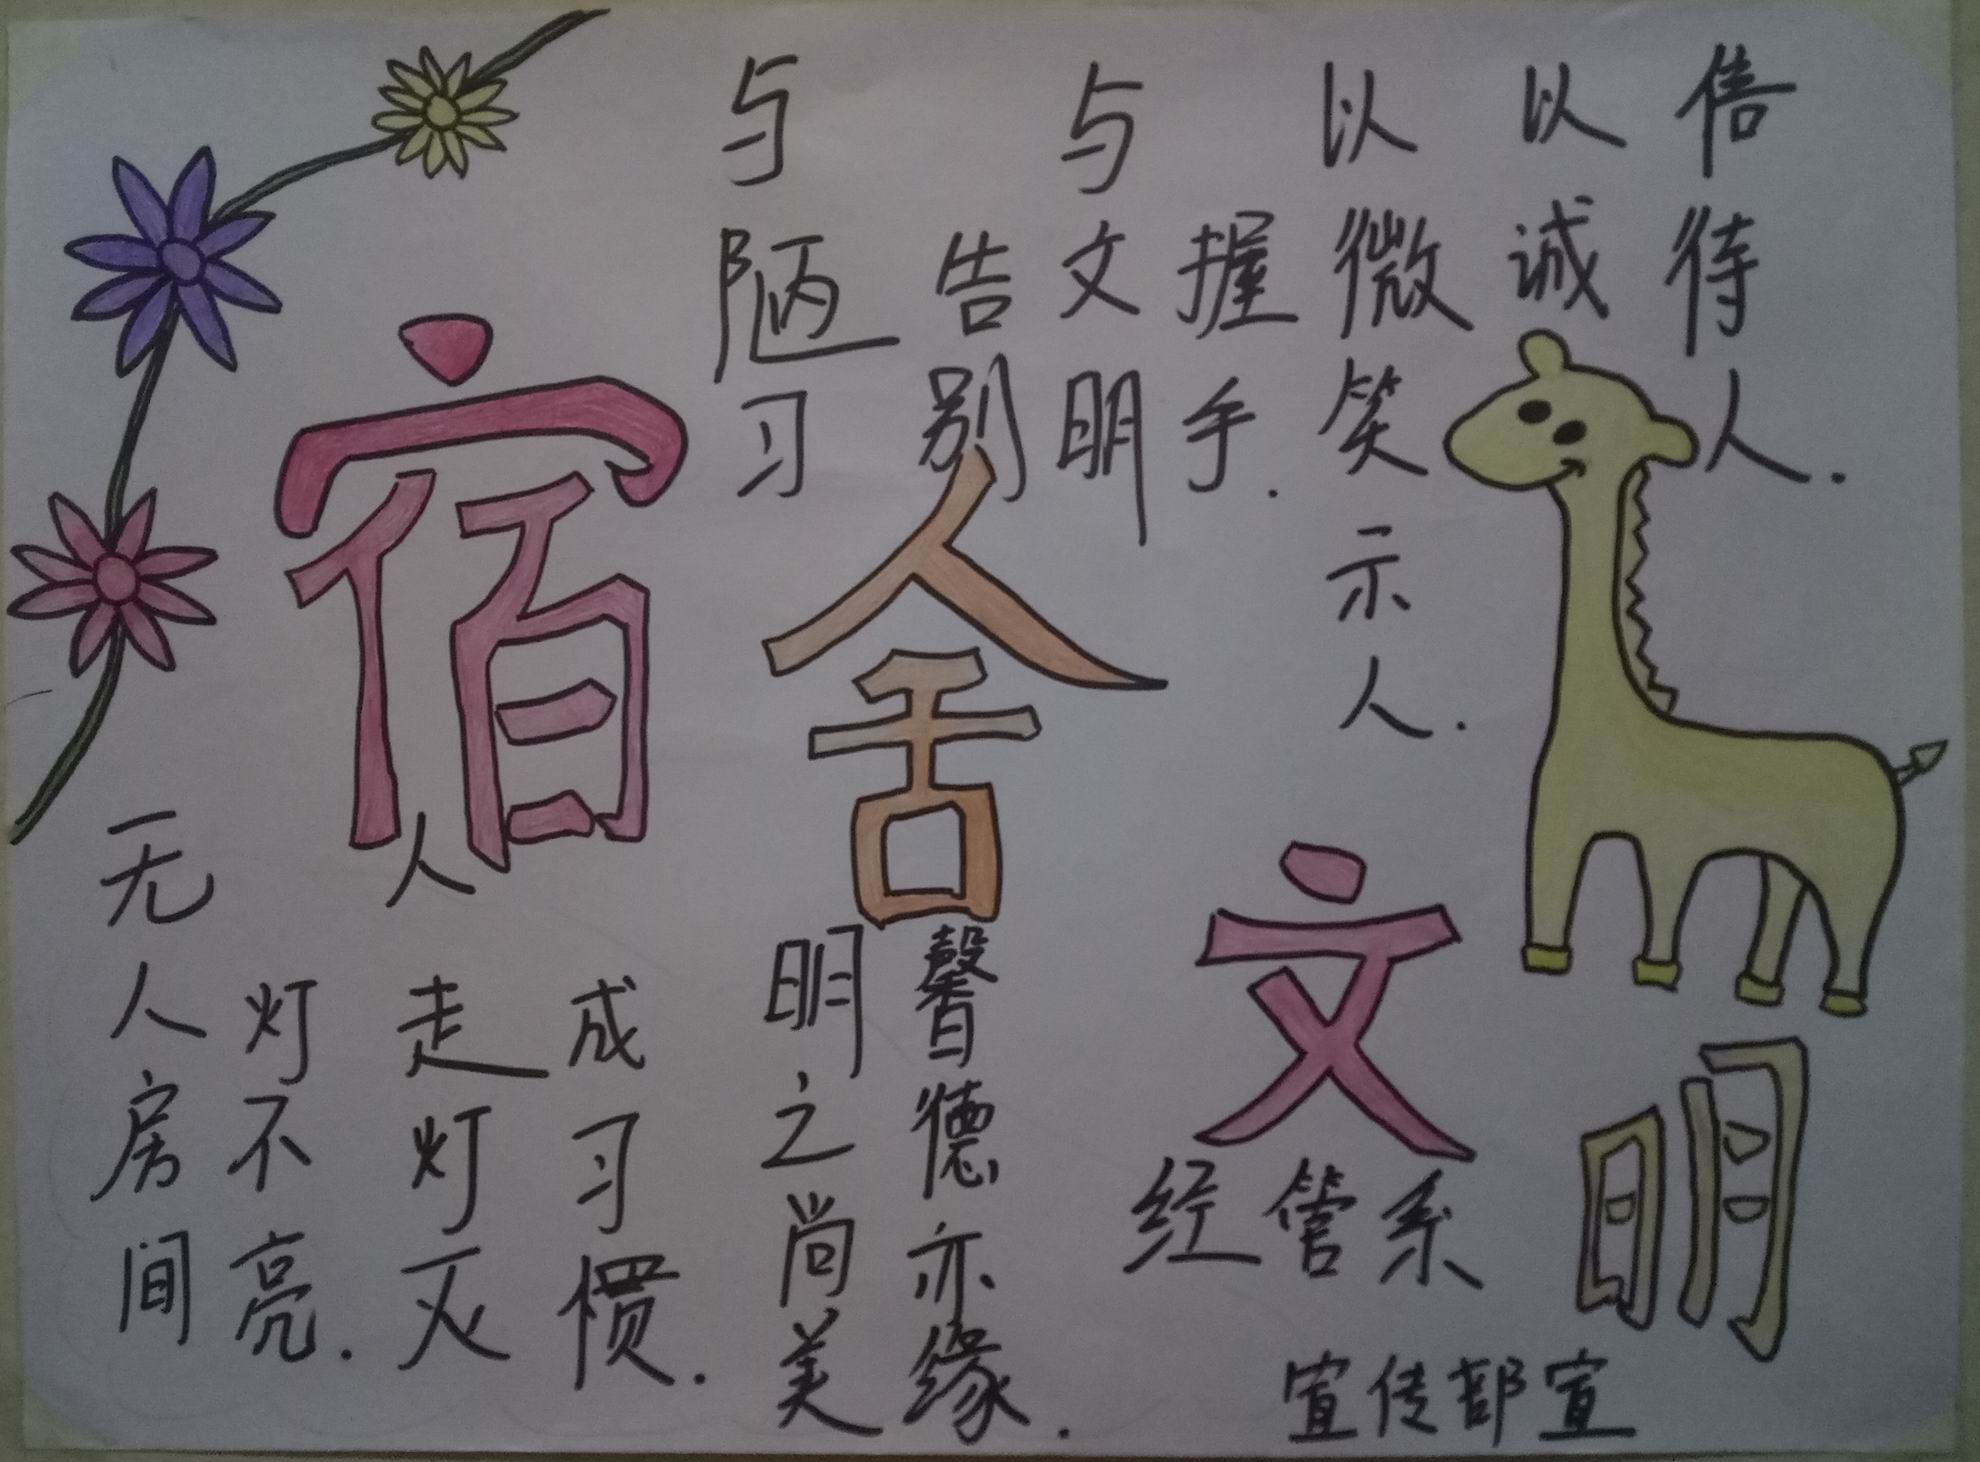 宿舍文明
与陋习
告别
与文明
握手.
以微笑示人.
以诚
信待人.
无人房间
灯不亮.
人走灯灭
成习惯.
明之尚美
馨德亦缘.
经管系
宣传部宣